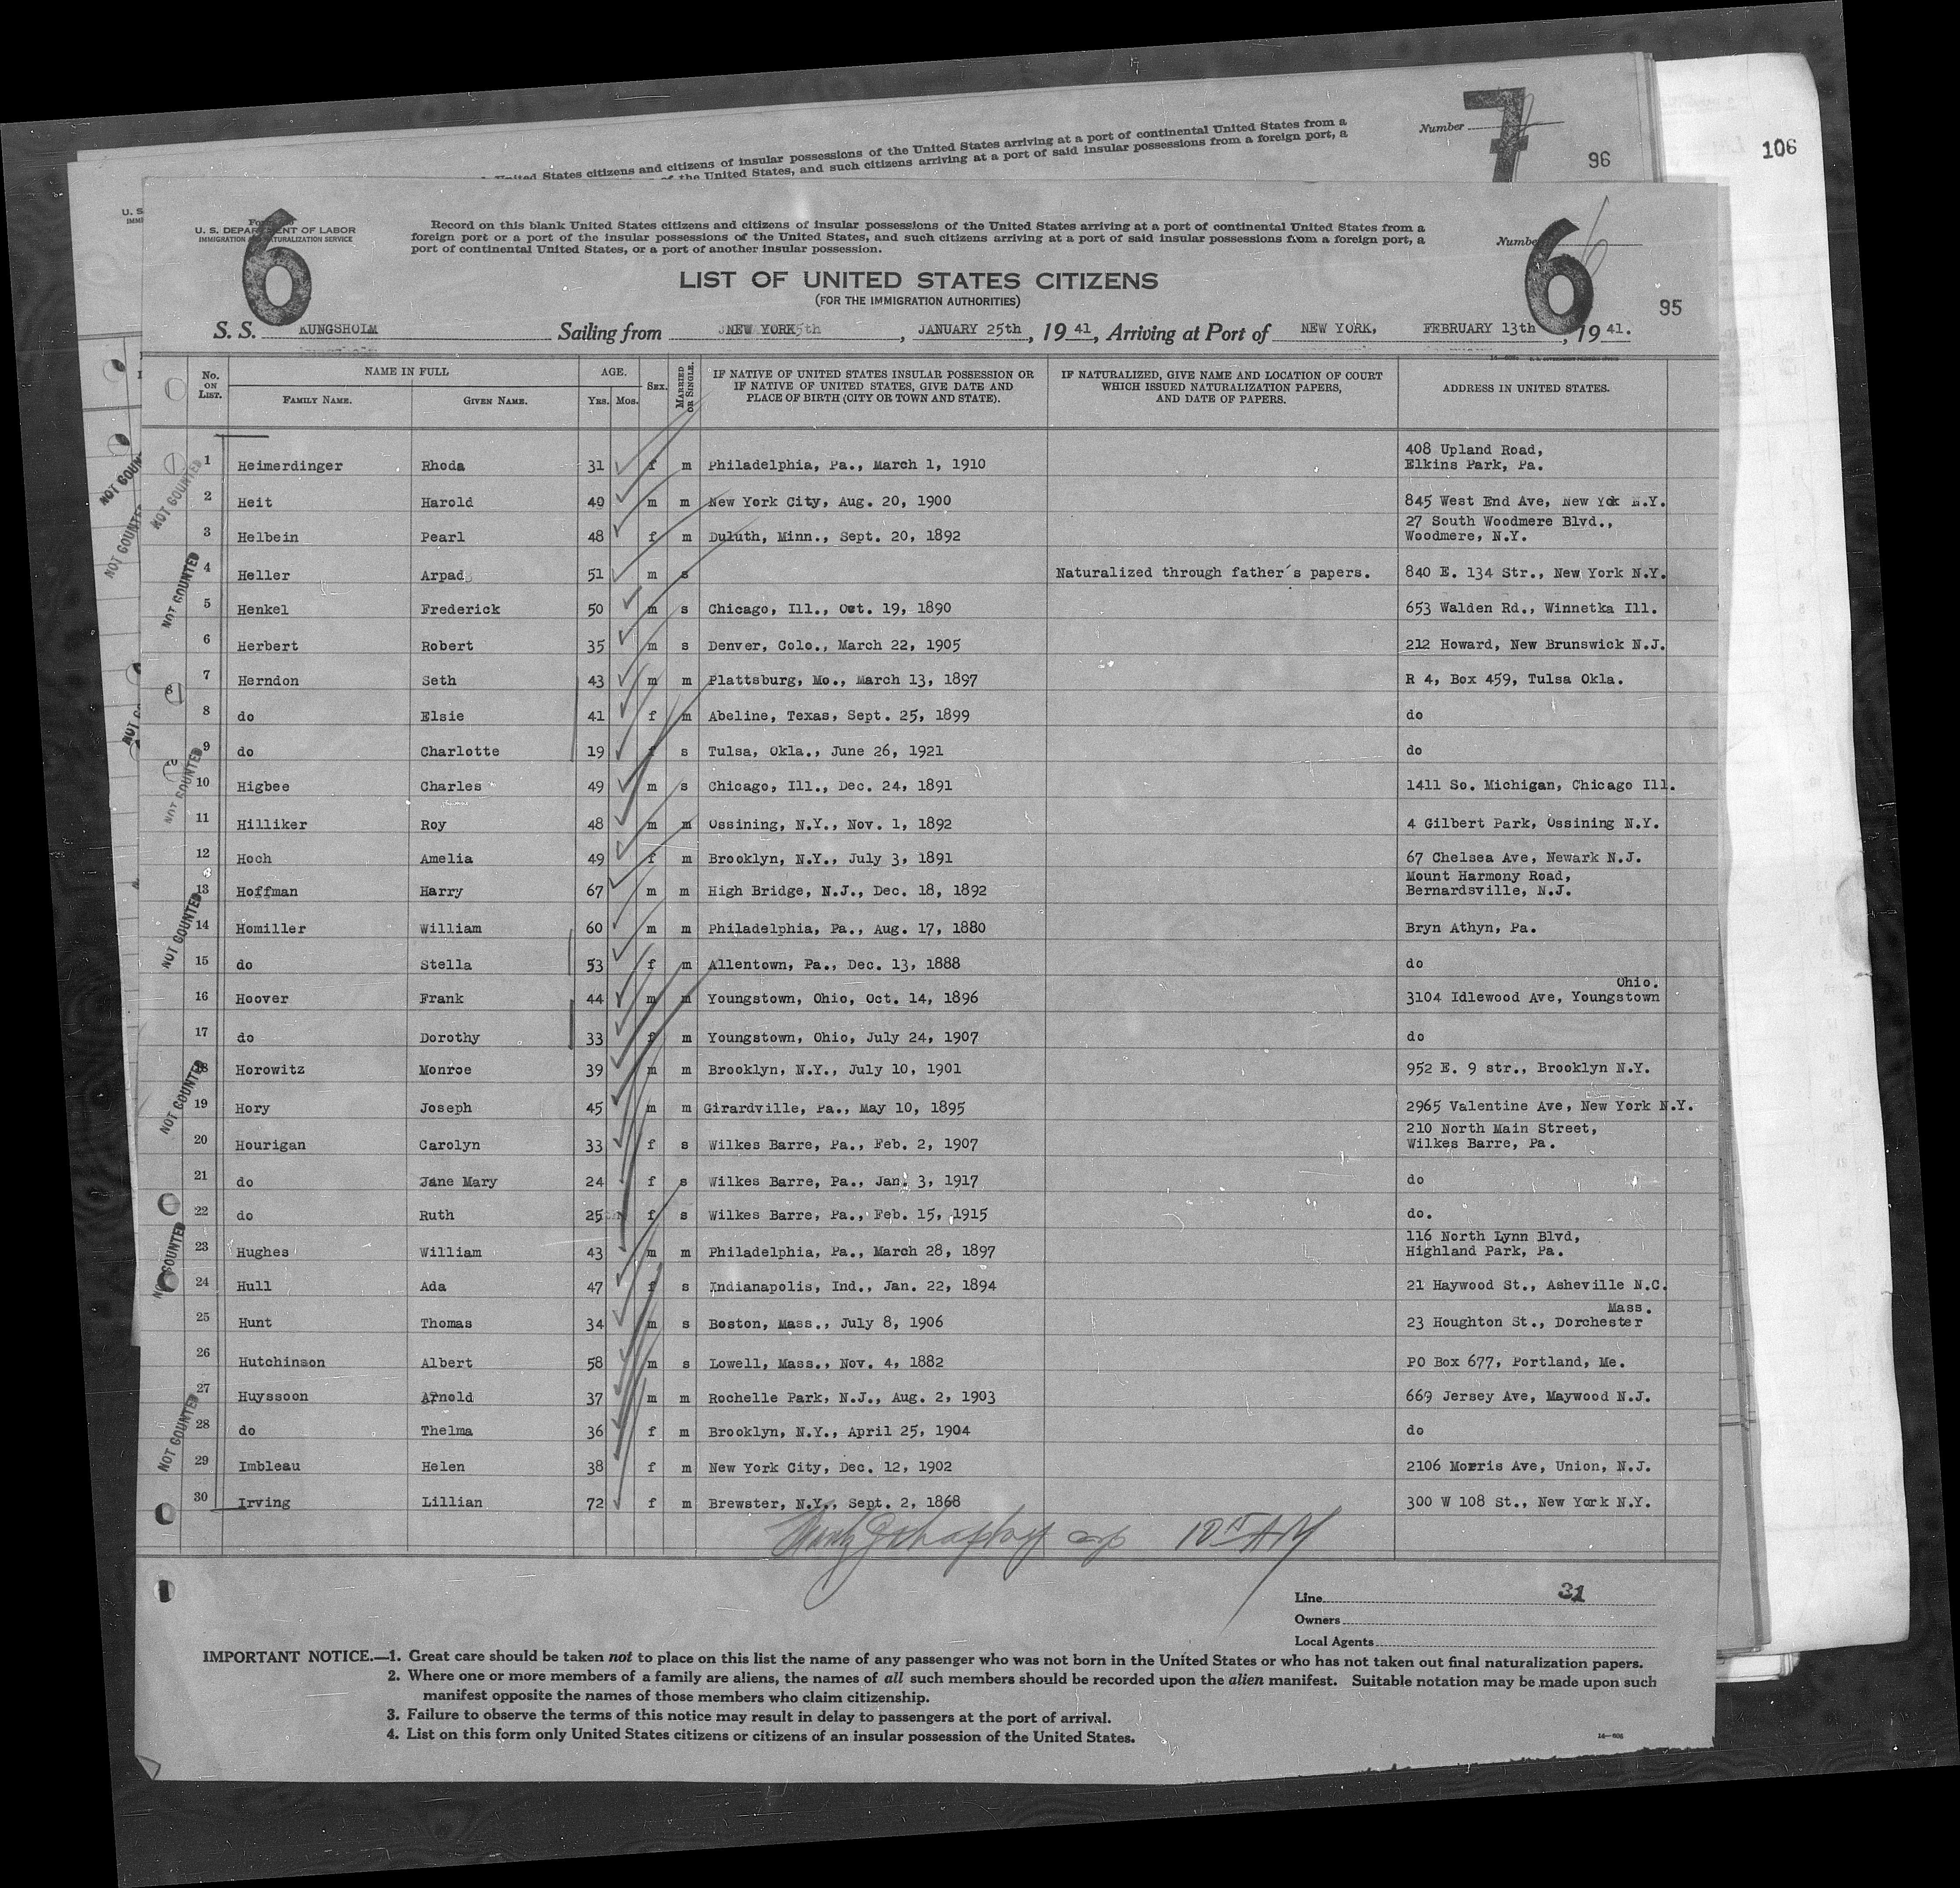 7
Number
96
106
United States citizens and citizens of insular possessions of the United States arriving at a port of continental United States from a
of the United States, and such citizens arriving at a port of said insular possessions from a foreign port, a
U. S. DEPARTMENT OF LABOR
IMMIGRATION AND NATURALIZATION SERVICE
6
Record on this blank United States citizens and citizens of insular possessions of the United States arriving at a port of continental United States from a
foreign port or a port of the insular possessions of the United States, and such citizens arriving at a port of said insular possessions from a foreign port, a
port of continental United States, or a port of another insular possession.
Number 6
6
95
LIST OF UNITED STATES CITIZENS
(FOR THE IMMIGRATION AUTHORITIES)
S. S. KUNGSHOLM Sailing from NEW YORK, JANUARY 25th, 1941, Arriving at Port of NEW YORK, FEBRUARY 13th, 1941.
No. ON LIST. NAME IN FULL FAMILY NAME. GIVEN NAME. AGE. YRS. MOS. SEX. MARRIED OR SINGLE. IF NATIVE OF UNITED STATES INSULAR POSSESSION OR IF NATIVE OF UNITED STATES, GIVE DATE AND PLACE OF BIRTH (CITY OR TOWN AND STATE). IF NATURALIZED, GIVE NAME AND LOCATION OF COURT WHICH ISSUED NATURALIZATION PAPERS, AND DATE OF PAPERS. ADDRESS IN UNITED STATES.
1 Heimerdinger Rhoda 31 f m Philadelphia, Pa., March 1, 1910 408 Upland Road, Elkins Park, Pa.
2 Heit Harold 40 m m New York City, Aug. 20, 1900 845 West End Ave, New Yok N.Y.
3 Helbein Pearl 48 f m Duluth, Minn., Sept. 20, 1892 27 South Woodmere Blvd., Woodmere, N.Y.
4 Heller Arpad 51 m s Naturalized through father's papers. 840 E. 134 Str., New York N.Y.
5 Henkel Frederick 50 m s Chicago, Ill., Oct. 19, 1890 653 Walden Rd., Winnetka Ill.
6 Herbert Robert 35 m s Denver, Colo., March 22, 1905 212 Howard, New Brunswick N.J.
7 Herndon Seth 43 m m Plattsburg, Mo., March 13, 1897 R 4, Box 459, Tulsa Okla.
8 do Elsie 41 f m Abeline, Texas, Sept. 25, 1899 do
9 do Charlotte 19 f s Tulsa, Okla., June 26, 1921 do
10 Higbee Charles 49 m s Chicago, Ill., Dec. 24, 1891 1411 So. Michigan, Chicago Ill.
11 Hilliker Roy 48 m m Ossining, N.Y., Nov. 1, 1892 4 Gilbert Park, Ossining N.Y.
12 Hoch Amelia 49 f m Brooklyn, N.Y., July 3, 1891 67 Chelsea Ave, Newark N.J.
13 Hoffman Harry 67 m m High Bridge, N.J., Dec. 18, 1892 Mount Harmony Road, Bernardsville, N.J.
14 Homiller William 60 m m Philadelphia, Pa., Aug. 17, 1880 Bryn Athyn, Pa.
15 do Stella 53 f m Allentown, Pa., Dec. 13, 1888 do
16 Hoover Frank 44 m m Youngstown, Ohio, Oct. 14, 1896 3104 Idlewood Ave, Youngstown Ohio.
17 do Dorothy 33 f m Youngstown, Ohio, July 24, 1907 do
18 Horowitz Monroe 39 m m Brooklyn, N.Y., July 10, 1901 952 E. 9 str., Brooklyn N.Y.
19 Hory Joseph 45 m m Girardville, Pa., May 10, 1895 2965 Valentine Ave, New York N.Y.
20 Hourigan Carolyn 33 f s Wilkes Barre, Pa., Feb. 2, 1907 210 North Main Street, Wilkes Barre, Pa.
21 do Jane Mary 24 f s Wilkes Barre, Pa., Jan. 3, 1917 do
22 do Ruth 25 f s Wilkes Barre, Pa., Feb. 15, 1915 do.
23 Hughes William 43 m m Philadelphia, Pa., March 28, 1897 116 North Lynn Blvd, Highland Park, Pa.
24 Hull Ada 47 f s Indianapolis, Ind., Jan. 22, 1894 21 Haywood St., Asheville N.C.
25 Hunt Thomas 34 m s Boston, Mass., July 8, 1906 23 Houghton St., Dorchester Mass.
26 Hutchinson Albert 58 m s Lowell, Mass., Nov. 4, 1882 PO Box 677, Portland, Me.
27 Huyssoon Arnold 37 m m Rochelle Park, N.J., Aug. 2, 1903 669 Jersey Ave, Maywood N.J.
28 do Thelma 36 f m Brooklyn, N.Y., April 25, 1904 do
29 Imbleau Helen 38 f m New York City, Dec. 12, 1902 2106 Morris Ave, Union, N.J.
30 Irving Lillian 72 f m Brewster, N.Y., Sept. 2, 1868 300 W 108 St., New York N.Y.
NOT COUNTED
NOT COUNTED
NOT COUNTED
NOT COUNTED
NOT COUNTED
NOT COUNTED
NOT COUNTED
Line 31
Owners
Local Agents
IMPORTANT NOTICE.—1. Great care should be taken not to place on this list the name of any passenger who was not born in the United States or who has not taken out final naturalization papers.
2. Where one or more members of a family are aliens, the names of all such members should be recorded upon the alien manifest. Suitable notation may be made upon such
manifest opposite the names of those members who claim citizenship.
3. Failure to observe the terms of this notice may result in delay to passengers at the port of arrival.
4. List on this form only United States citizens or citizens of an insular possession of the United States.